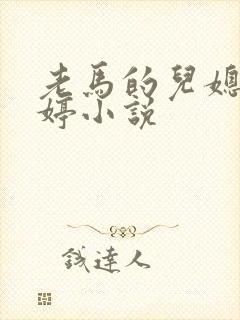 老馬的兒媳
婷小說
錢達人